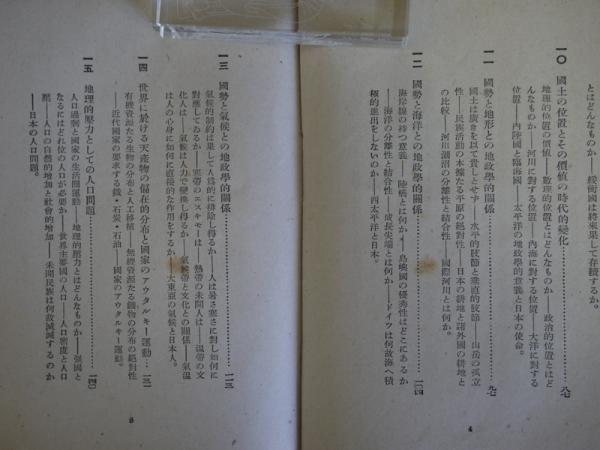 とはどんなものか──緩衝國は將來果して存續するか。
一〇 國土の位置とその價値の時代的變化……八七
地理的位置の價値──數理的位置とはどんなものか──政治的位置とはど
んなものか──河川に對する位置──內海に對する位置──大洋に對する
位置──內陸國と臨海國──太平洋の地政學的意義と日本の使命。
一一 國勢と地形との地政學的關係……九七
國土は廣きを以て貴しとせず──水平的肢節と垂直的肢節──山岳の孤立
性──民族活動の本據たる平原の絕對性──日本の耕地と諸外國の耕地と
の比較──河川湖沼の分離性と結合性──國際河川とは何か。
一二 國勢と海洋との地政學的關係……一〇四
海岸線の持つ意義──陸橋とは何か──島嶼國の優秀性はどこにあるか
──海洋の分離性と結合性──成長尖端とは何か──ドイツは何故海へ積
極的進出をしないのか──西太平洋と日本。
4
一三 國勢と氣候との地政學的關係……一一三
氣候的制約は果して人爲的に排除し得るか──人は暑さ寒さに對し如何に
對應してゐるか──寒帶のエスキモーは──熱帶の未開人は──溫帶の文
化人は──氣候は人力で變換し得るか──氣候帶と文化との關係──氣溫
は人の心身に如何に直接的な作用をするか──大東亞の氣候と日本人。
一四 世界に於ける天產物の偏在的分布と國家のアウタルキー運動…一三一
有機資源たる生物の分布と人工移植──無機資源たる鑛物の分布の絕對性
──近代國家の要求する鐵・石炭・石油──國家のアウタルキー運動。
一五 地理的壓力としての人口問題……一四〇
人口過剩と國家の生活圈運動──地理的壓力とはどんなものか──强國と
なるにはどれ位の人口が必要か──世界主要國の人口──人口密度と人口
壓──人口の自然的增加と社會的增加──未開民族は何故減滅するのか
──日本の人口問題。